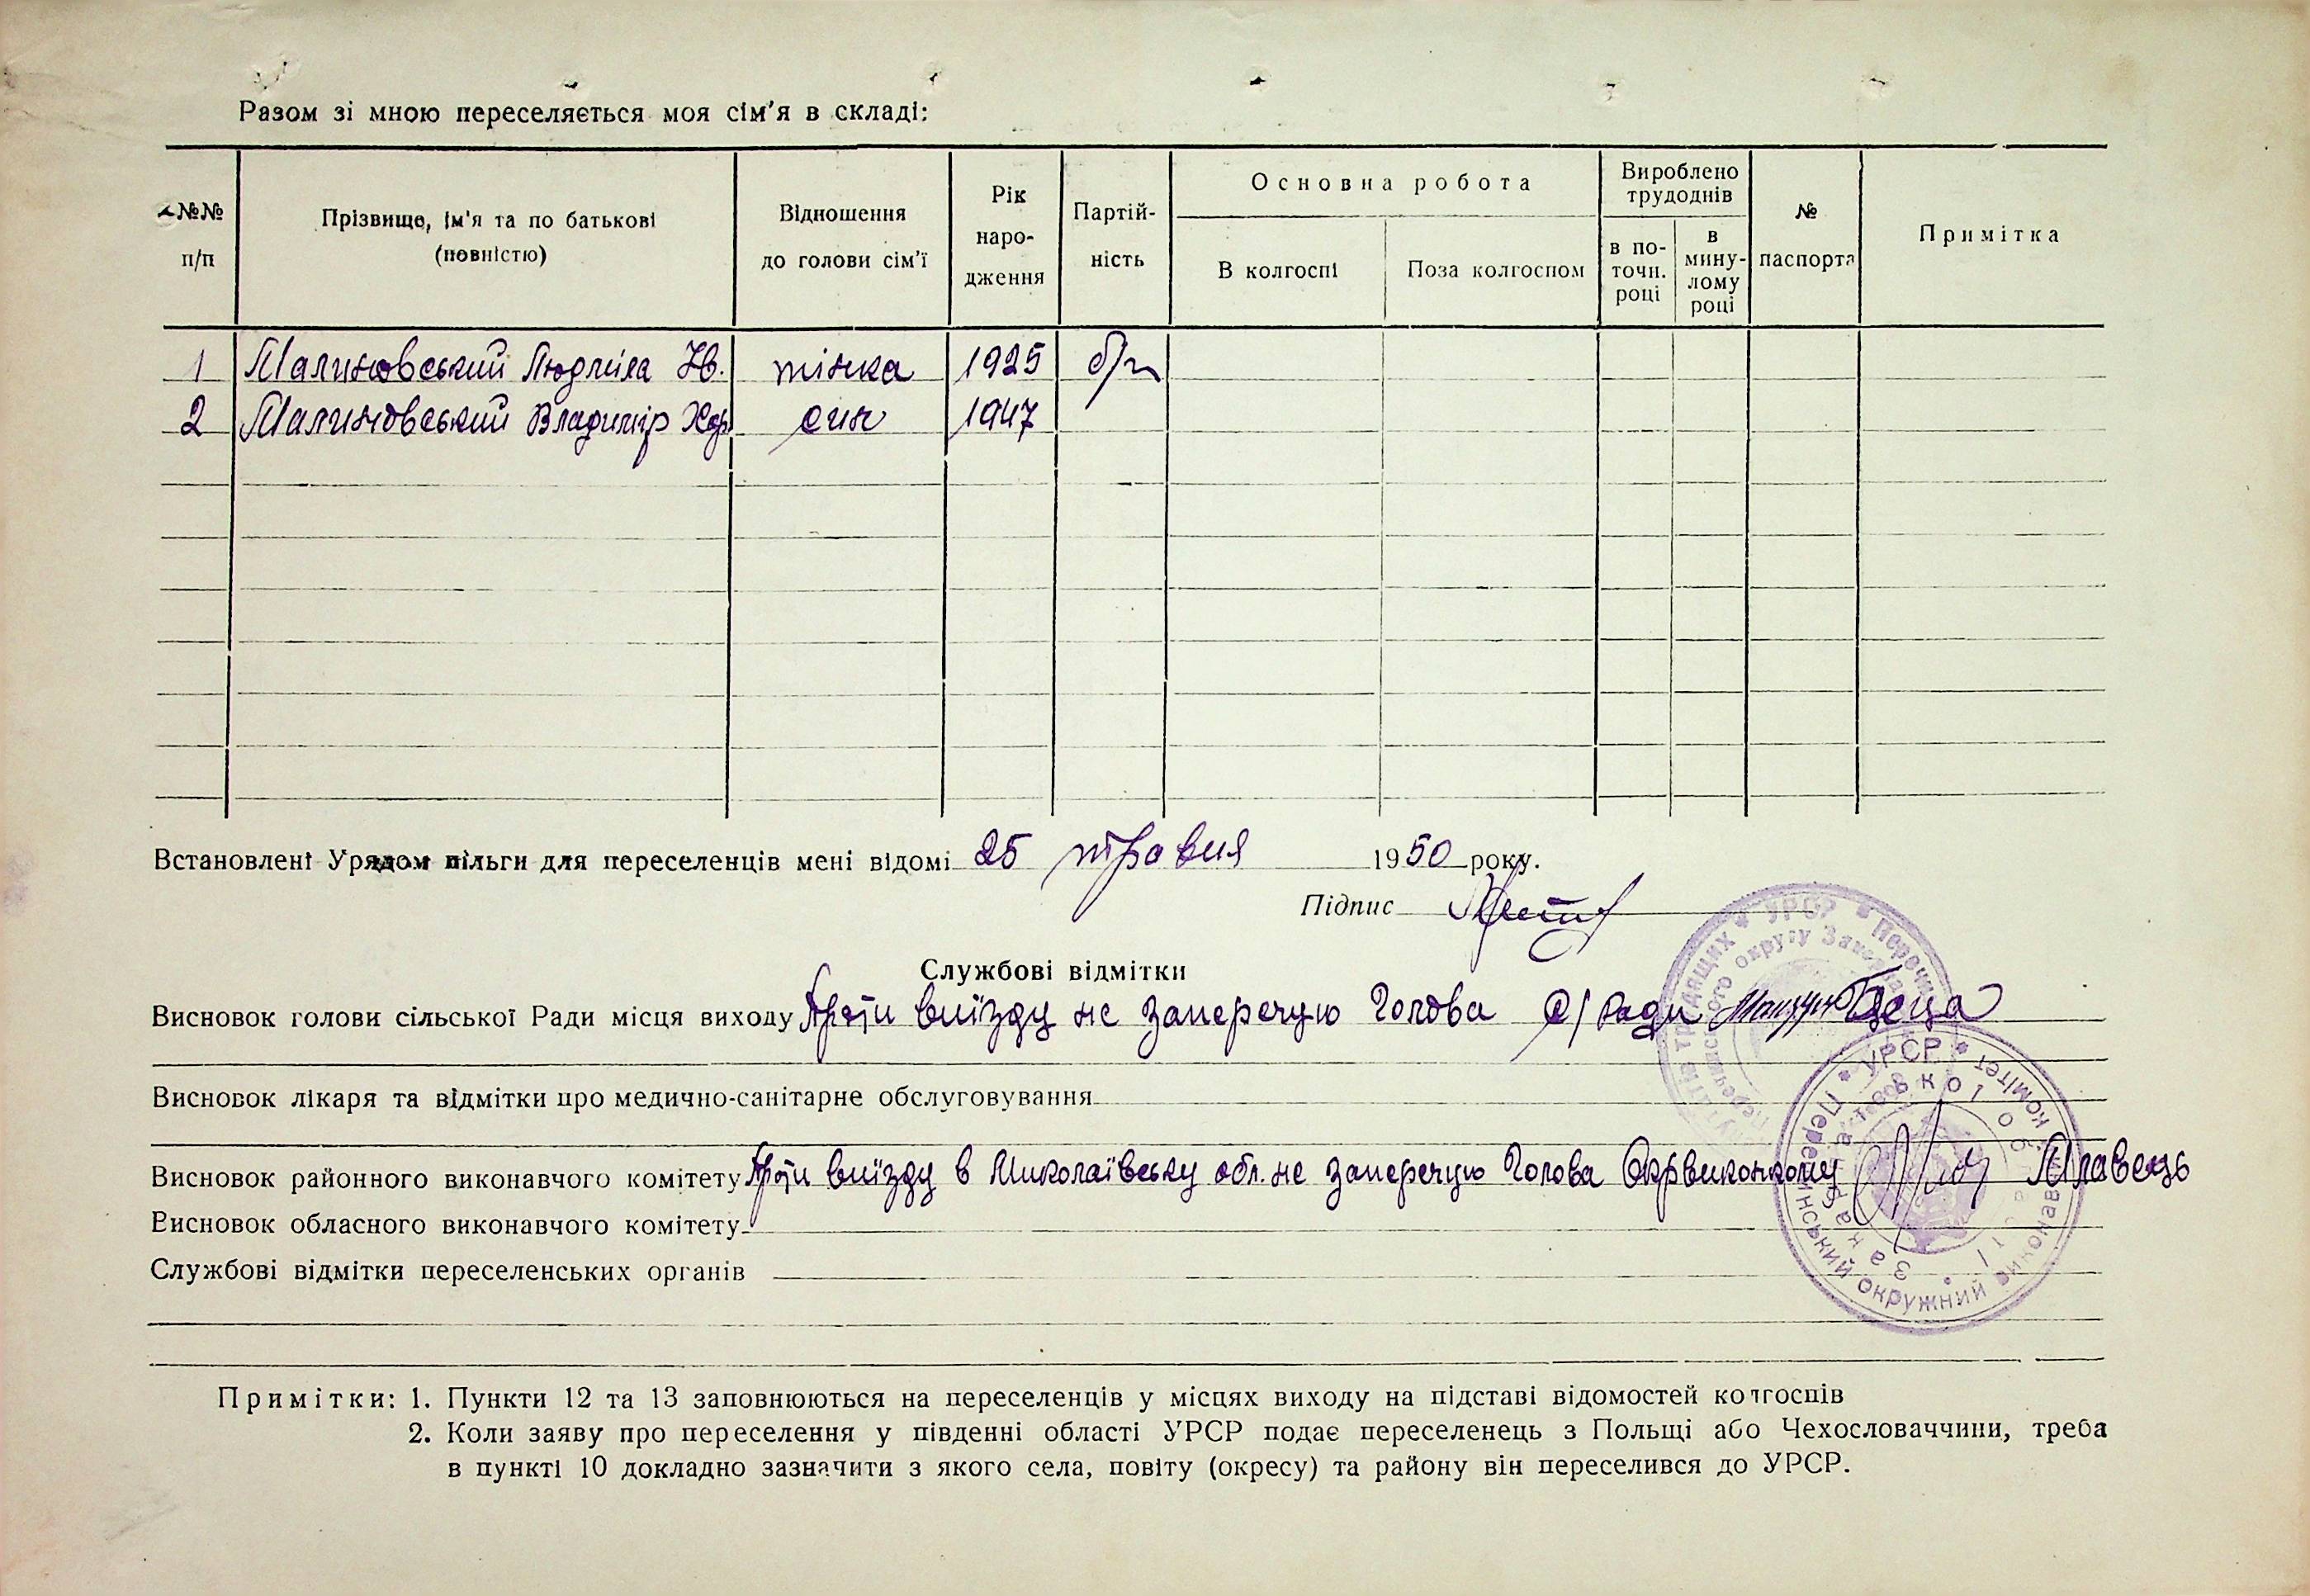 Разом зі мною переселяється моя сім'я в складі:
№№ п/п
Прізвище, ім'я та по батькові (повністю)
Відношення до голови сім'ї
Рік народження
Партійність
Основна робота
В колгоспі
Поза колгоспом
Вироблено трудоднів
в поточн. році
в минулому році
№ паспорта
Примітка
1 Малиновський Людміла Ів. жінка 1925 б/п
2 Малиновський Владимір син 1947
Встановлені Урядом пільги для переселенців мені відомі 25 травня 1950 року.
Підпис
Службові відмітки
Висновок голови сільської Ради місця виходу Проти виїзду не заперечую Голова с/Ради
Висновок лікаря та відмітки про медично-санітарне обслуговування
Висновок районного виконавчого комітету Проти виїзду в Миколаївську обл. не заперечую Голова Окрвиконкому
Висновок обласного виконавчого комітету
Службові відмітки переселенських органів
УРСР * Перечинський окружний виконавчий комітет
Примітки: 1. Пункти 12 та 13 заповнюються на переселенців у місцях виходу на підставі відомостей колгоспів
2. Коли заяву про переселення у південні області УРСР подає переселенець з Польщі або Чехословаччини, треба
в пункті 10 докладно зазначити з якого села, повіту (окресу) та району він переселився до УРСР.